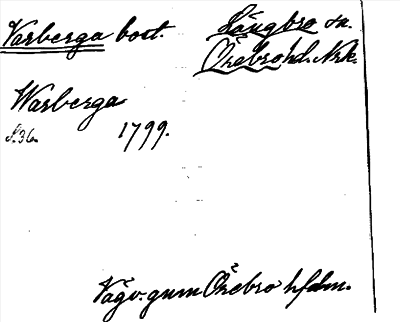 Varberga bost.
Längbro sn.
Örebro hd. Nrk.
Warberga
S. 36. 1799.
Vägv. gnm Örebro hfdm.